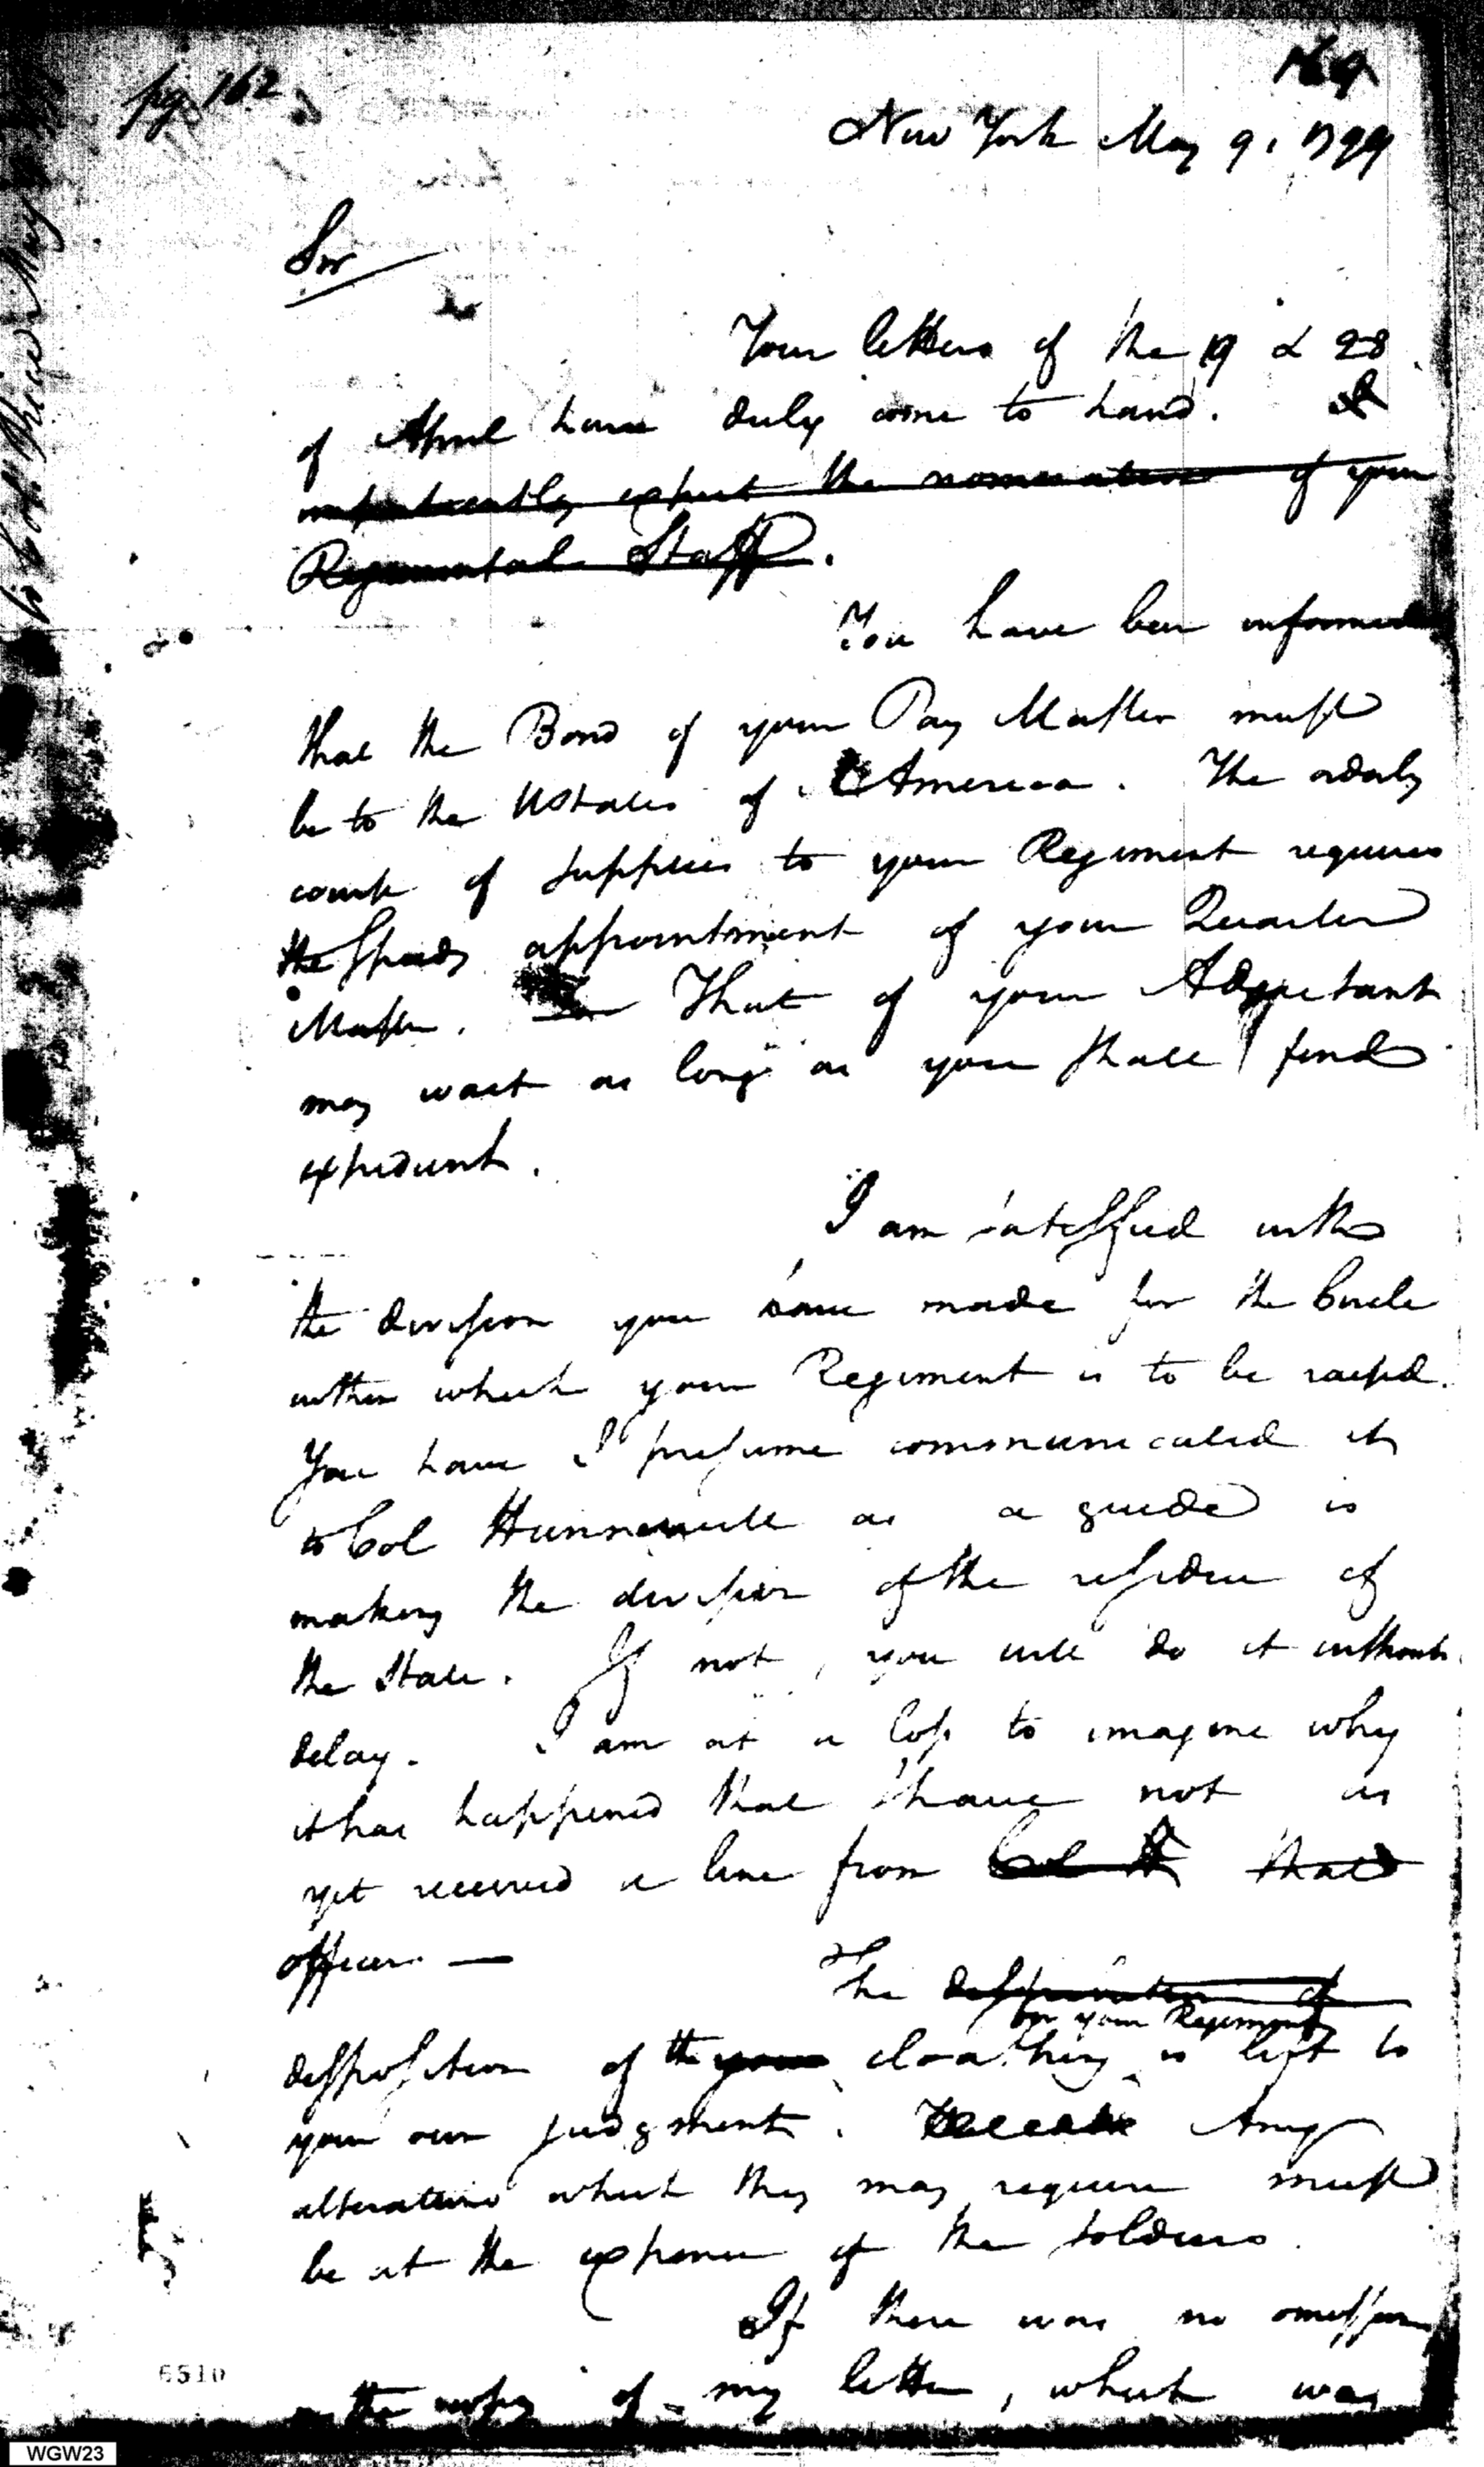 pg. 162
169
New York May 9. 1799
Sir
Your letters of the 19 & 28
of April have duly come to hand. I
impatiently expect the nomination of your
Regimental Staff.
You have been informed
that the Bond of your Pay Master must
be to the UStates of America. The orderly
course of supplies to your Regiment requires
the speedy appointment of your Quarter
Master. That of your Adjutant
may wait as long as you shall find
expedient.
I am satisfied with
the division you have made for the Circle
within which your Regiment is to be raised.
You have I presume communicated it
to Col Hunnewell as a guide in
making the division of the residue of
the State. If not, you will do it without
delay. I am at a loss to imagine why
it has happened that I have not as
yet received a line from Col H that
officer. —
The disposition of
for your Regiment
disposition of the your cloathing is left to
your own judgment. Any
alterations which they may require must
be at the expence of the soldiers.
If there was no omission
in the copy of my letter, which was
to Col. Rice May
6510
WGW23